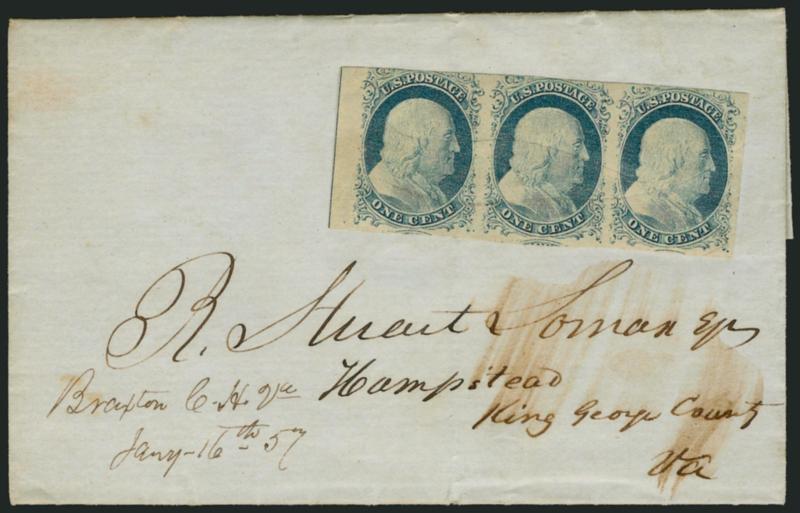 U.S. POSTAGE
ONE CENT
U.S. POSTAGE
ONE CENT
U.S. POSTAGE
ONE CENT
R. Stuart Lomax Esqr
Hampstead
King George County
Va
Braxton C. H. Va
Jany 16th 57